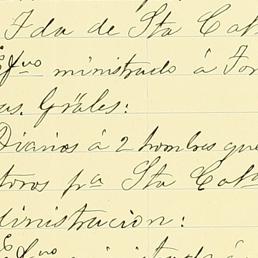 Fda de Sta Cat
Efvo ministrado á For
as. Gräles:
Diarios á 2 hombres que
toros pa Sta Cata
dministracion: